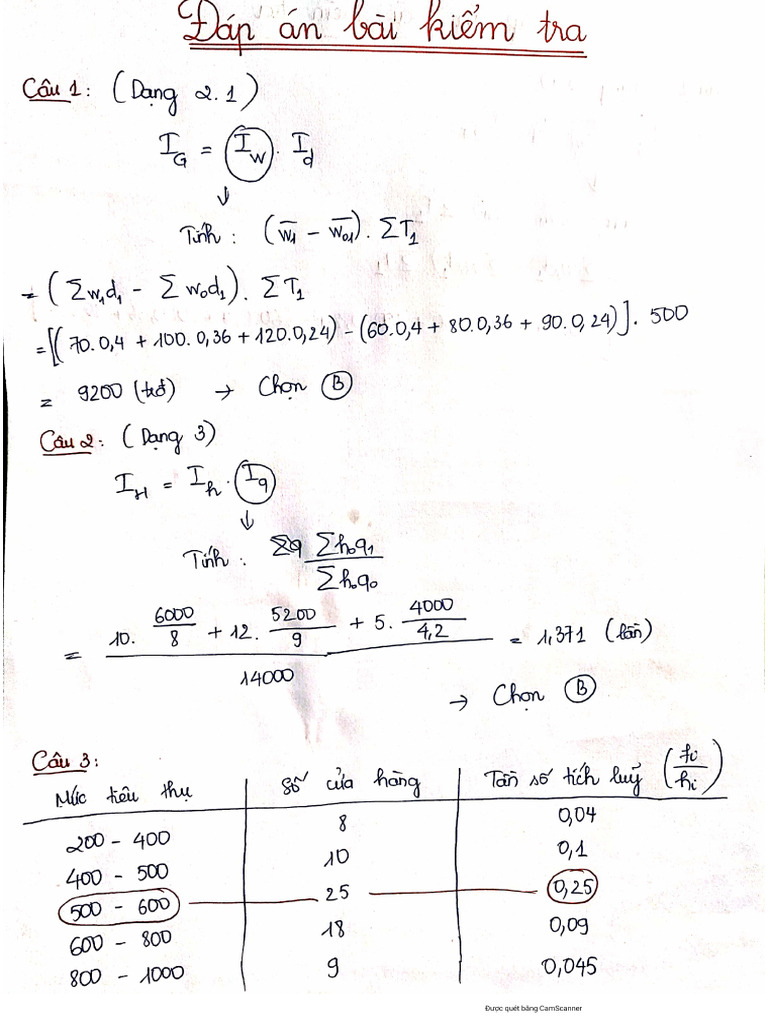 Đáp án bài kiểm tra
Câu 1: (Dạng 2.1)
I_G = I_w . I_d
↓
Tính: (w̄₁ - w̄₀₁). ΣT₁
= (Σw₁d₁ - Σw₀d₁). ΣT₁
= [(70.0,4 + 100.0,36 + 120.0,24) - (60.0,4 + 80.0,36 + 90.0,24)]. 500
= 9200 (trđ) → Chọn B
Câu 2: (Dạng 3)
I_H = I_h . I_q
↓
Tính: Σh₀q₁ / Σh₀q₀
= (10. 6000/8 + 12. 5200/9 + 5. 4000/4,2) / 14000 = 1,371 (lần)
→ Chọn B
Câu 3:
Mức tiêu thụ | Số cửa hàng | Tần số tích luỹ (fi/hi)
200 - 400 | 8 | 0,04
400 - 500 | 10 | 0,1
500 - 600 | 25 | 0,25
600 - 800 | 18 | 0,09
800 - 1000 | 9 | 0,045
Được quét bằng CamScanner